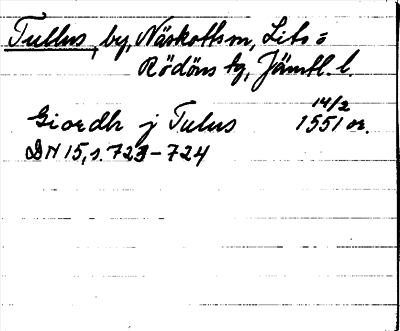 Tullus, by, Näskottsm, Lits=
Rödöns tg, Jämtl. l.
14/2
Giordh j Tulus 1551 or.
DN 15, s. 723-724